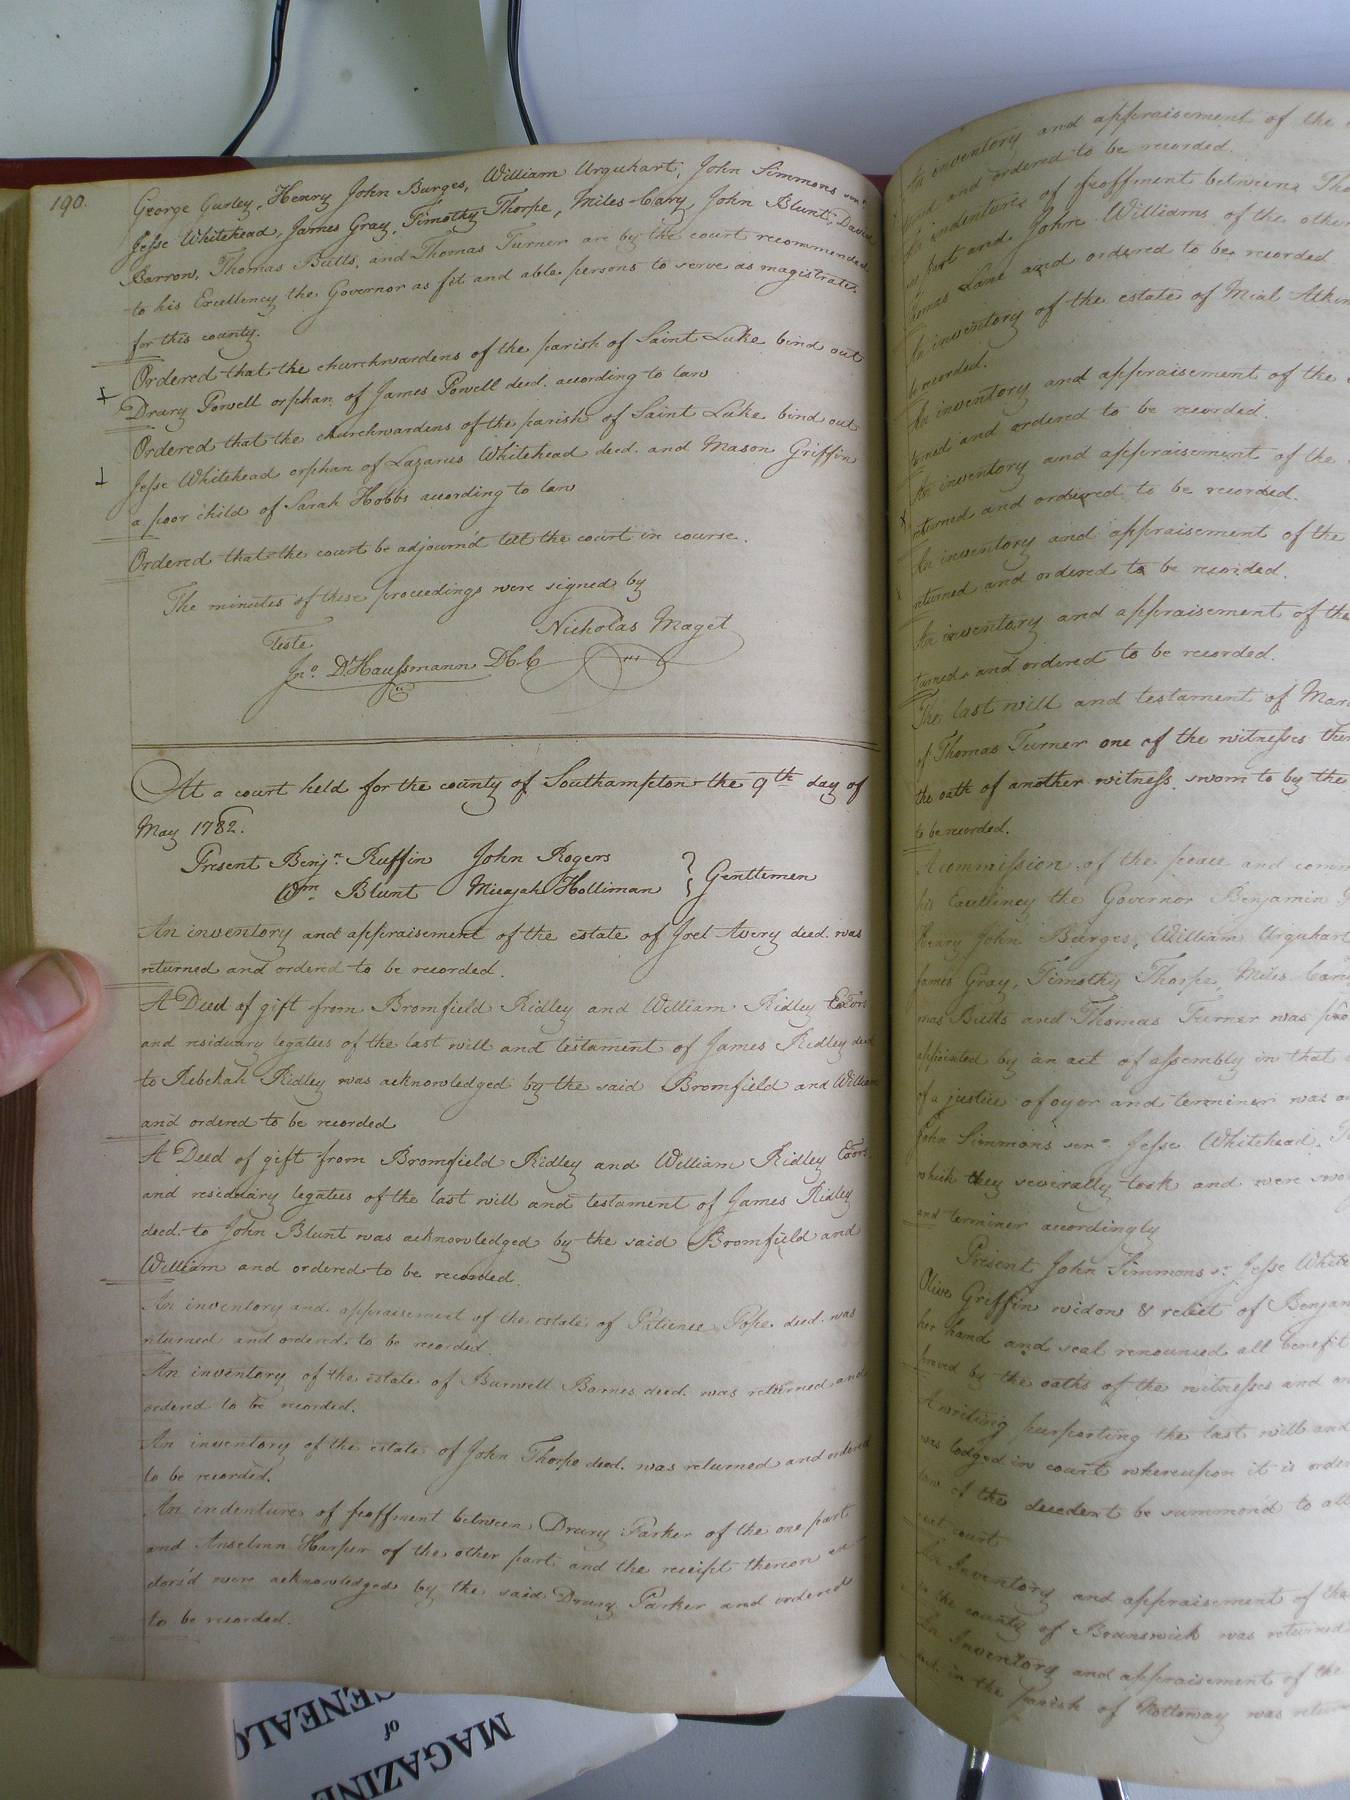 190.
George Gurley, Henry John Burges, William Urquhart, John Simmons senr
Jesse Whitehead, James Gray, Timothy Thorpe, Miles Cary, John Blunt, David
Barrow, Thomas Butts, and Thomas Turner are by the court recommended
to his Excellency the Governor as fit and able persons to serve as magistrates
for this county.
Ordered that the churchwardens of the parish of Saint Luke bind out
Drury Powell orphan of James Powell deed. according to law
Ordered that the churchwardens of the parish of Saint Luke bind out
Jesse Whitehead orphan of Lazarus Whitehead deed. and Mason Griffin
a poor child of Sarah Hobbs according to law
Ordered that the court be adjourn'd till the court in course.
The minutes of these proceedings were signed by
Nicholas Maget
Teste
Jno. D'Haussmann DCC
At a court held for the county of Southampton the 9th day of
May 1782.
Present Benjn. Ruffin John Rogers
Wm. Blunt Micajah Holliman } Gentlemen
An inventory and appraisement of the estate of Joel Avery deed. was
returned and ordered to be recorded.
A Deed of gift from Bromfield Ridley and William Ridley Exors
and residuary legatees of the last will and testament of James Ridley deed
to Rebekah Ridley was acknowledged by the said Bromfield and William
and ordered to be recorded
A Deed of gift from Bromfield Ridley and William Ridley Exors.
and residuary legatees of the last will and testament of James Ridley
deed. to John Blunt was acknowledged by the said Bromfield and
William and ordered to be recorded.
An inventory and appraisement of the estate of Patience Pope deed. was
returned and ordered to be recorded.
An inventory of the estate of Burwell Barnes deed. was returned and
ordered to be recorded.
An inventory of the estate of John Thorpe deed. was returned and ordered
to be recorded.
An indenture of feoffment between Drury Parker of the one part
and Anselmn Harper of the other part and the receipt thereon en
dors'd were acknowledged by the said Drury Parker and ordered
to be recorded.
An inventory and appraisement of the
and ordered to be recorded.
An indenture of feoffment between Tho
part and John Williams of the other
Thomas Lane and ordered to be recorded
An inventory of the estate of Mial Atkin
be recorded.
An inventory and appraisement of the
turned and ordered to be recorded.
An inventory and appraisement of the
returned and ordered to be recorded.
An inventory and appraisement of the
returned and ordered to be recorded.
An inventory and appraisement of the
turned and ordered to be recorded.
The last will and testament of Mar
of Thomas Turner one of the witnesses ther
the oath of another witness sworn to by the
to be recorded.
A commission of the peace and comm
his Excellency the Governor Benjamin
Henry John Burges, William Urquhart
James Gray, Timothy Thorpe, Miles Cary
mas Butts and Thomas Turner was pro
appointed by an act of assembly in that
of a justice of oyer and terminer was
John Simmons senr Jesse Whitehead,
which they severally took and were swo
and terminer accordingly
Present John Simmons sr. Jesse White
Olive Griffin widow & relict of Benjam
her hand and seal renounced all benefit
proved by the oaths of the witnesses and or
A writing purporting the last will and
was lodged in court whereupon it is order
law of the decedent be summon'd to att
next court
An Inventory and appraisement of the
in the county of Brunswick was returned
An Inventory and appraisement of the
in the parish of Nottoway was return
MAGAZINE
of
GENEALO